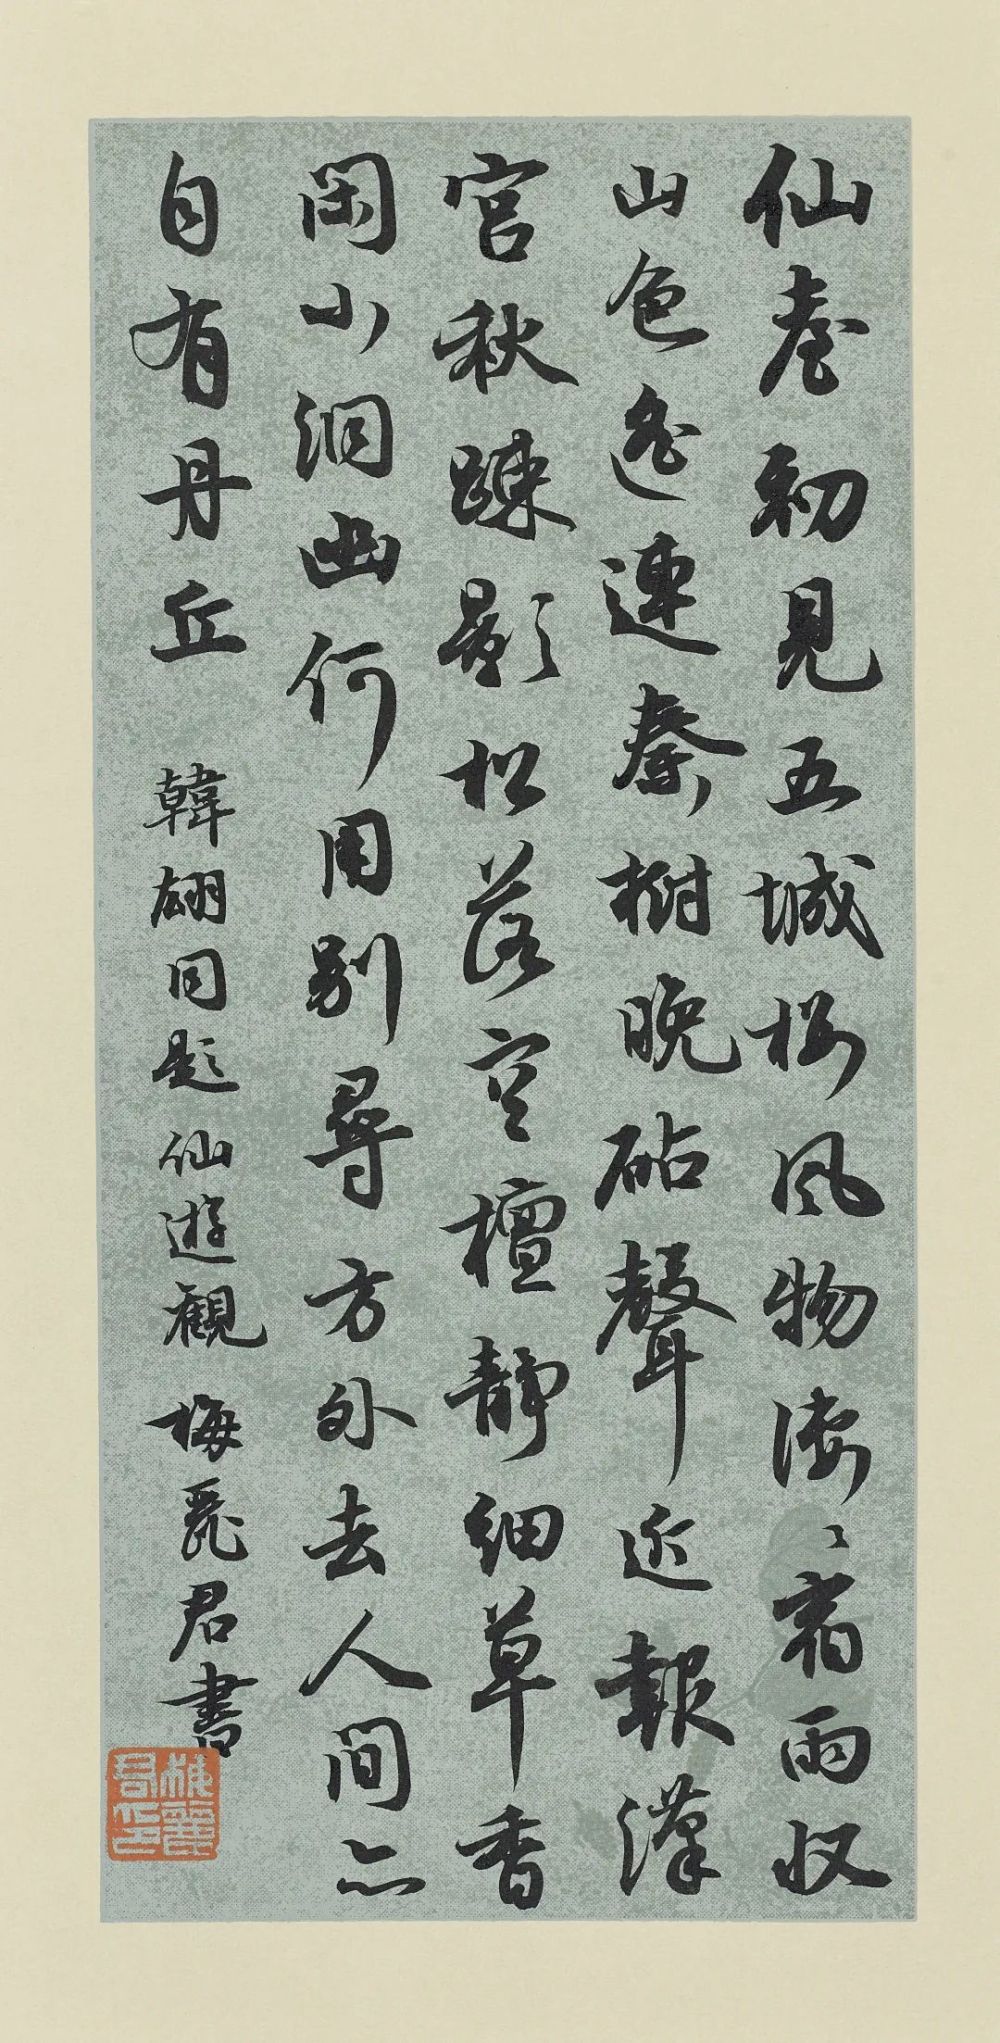 仙臺初見五城樓風物淒〻宿雨收
山色遙連秦樹晚砧聲近報漢
宮秋疎影松落空壇靜細草香
閑小洞幽何用別尋方外去人間亦
自有丹丘
韓翃同題仙遊觀 梅麗君書
梅麗君印